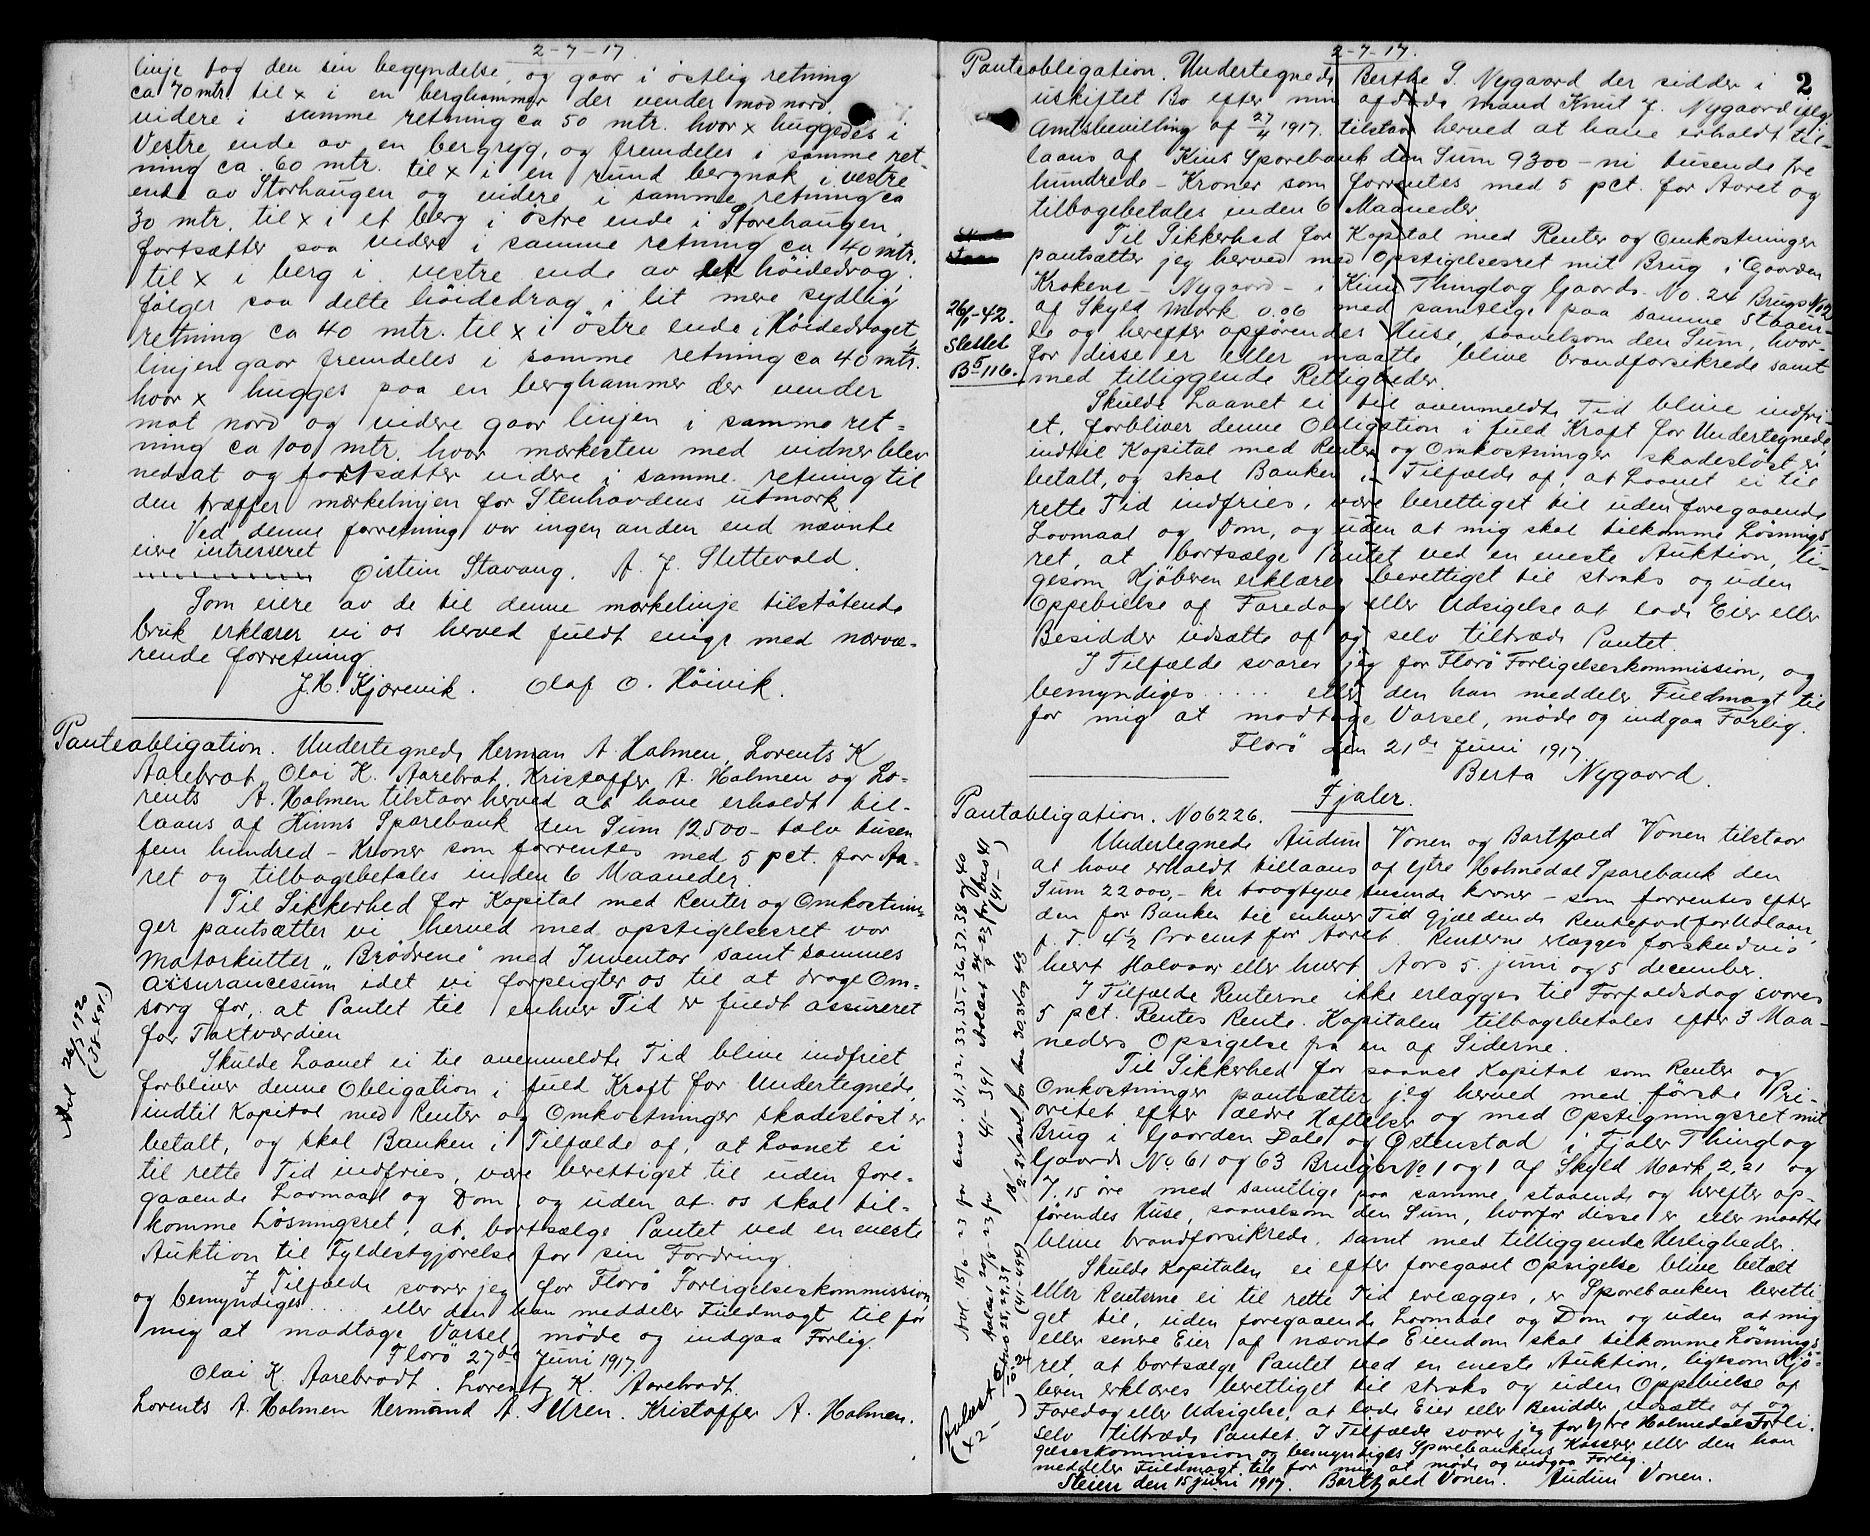 2-7-17.
linje tog den sin begyndelse, og gaar i østlig retning
ca 70 mtr. til x i en berghammer der vender mod nord
videre i samme retning ca 50 mtr. hvor x huggedes i
Vestre ende av en bergryg, og fremdeles i samme ret-
ning ca. 60 mtr. til x i en rund bergnak i vestre
ende av Storhaugen og videre i samme retning ca
30 mtr. til x i et berg i østre ende i Storehaugen,
fortsætter saa videre i samme retning ca 40 mtr.
til x i berg i vestre ende av et høidedrag,
følger saa dette høidedrag i lit mere sydlig
retning ca 40 mtr. til x i østre ende i Høidedraget,
linjen gaar fremdeles i samme retning ca 40 mtr.
hvor x hugges paa en berghammer der vender
mot nord og videre gaar linjen i samme ret=
ning ca 100 mtr. hvor merkesten med vidner blev
nedsat og fortsætter videre i samme retning til
den træffer merkelinjen for Stenhovdens utmark
Ved denne forretning var ingen anden end nævnte
eiere intresseret
Øistein Stavang. A. J. Slettevold.
Som eiere av de til denne merkelinje tilstøtende
bruk erklærer vi os herved fuldt enige med nærvæ-
rende forretning
J. H. Kjærevik. Olaf O. Høivik.
Panteobligation. Undertegnede Herman A Holmen, Lorents K
Aarebrot, Olai K. Aarebrot, Kristoffer A. Holmen og Lo-
rents A. Holmen tilstaar herved at have erholdt til-
laans af Kinns Sparebank den Sum 12500 - tolv tusen
fem hundred - Kroner som forrentes med 5 pct. for Aa-
ret og tilbagebetales inden 6 Maaneder.
Til Sikkerhed for Kapital med Renter og Omkostnin-
ger pantsætter vi herved med opstigelsesret vor
Motorkutter „Brødrene" med Inventar samt sammes
assurancesum idet vi forpligter os til at drage Om-
sorg for, at Pantet til enhver Tid er fuldt assureret
for Taxtværdien
Skulde Laanet ei til ovenmeldte Tid blive indfriet,
forbliver denne Obligation i fuld Kraft for Undertegnede,
indtil Kapital med Renter og Omkostninger skadesløst er
betalt, og skal Banken i Tilfælde af, at Laanet ei
til rette Tid indfries, være berettiget til uden fore-
gaaende Lovmaal og Dom, og uden at os skal til-
komme Løsningsret, at bortsælge Pantet ved en eneste
Auktion til Fyldestgjørelse for sin Fordring
I Tilfælde svarer jeg for Florø Forligelseskommission,
og bemyndiges ... eller den han meddeler Fuldmagt til for
mig at modtage Varsel, møde og indgaa Forlig.
Florø 27de Juni 1917
Olai K. Aarebrodt. Lorents K. Aarebrodt.
Lorents A. Holmen Hermand A. Uren. Kristoffer A. Holmen.
Avl 26/3 1920
(38-491.)
2-7-17.
2
Panteobligation. Undertegnede Berthe S. Nygaard der sidder i
uskiftet Bo efter min afdøde mand Knut J. Nygaard ifølge
Amtsbevilling af 27/4 1917. tilstaar herved at have erholdt til-
laans af Kins Sparebank den Sum 9300 - ni tusende tre
hundrede - Kroner som forrentes med 5 pct. for Aaret og
tilbagebetales inden 6 Maaneder.
Til Sikkerhed for Kapital med Renter og Omkostninger
pantsætter jeg herved med Opstigelsesret mit Brug i Gaarden
Krokene - Nygaard - i Kinn Thinglag Gaards No. 24 Brugs No 2
af Skyld Mark 0.06 med samtlige paa samme staaen-
de og herefter opførendes Huse, saavelsom den Sum, hvor-
for disse er eller maatte blive brandforsikrede samt
med tilliggende Rettigheder.
26/1-42.
Slettet
B5 116.
Skulde Laanet ei til ovenmeldte Tid blive indfri-
et, forbliver denne Obligation i fuld Kraft for Undertegnede
indtil Kapital med Renter og Omkostninger skadesløst er
betalt, og skal Banken i Tilfælde af, at Laanet ei til
rette Tid indfries, være berettiget til uden foregaaende
Lovmaal og Dom, og uden at mig skal tilkomme Løsnings
ret, at bortsælge Pantet ved en eneste Auktion, li-
gesom Kjøberen erklæres berettiget til straks og uden
Oppebielse af Faredag eller Udsigelse at lade Eier eller
Besidder udsætte af og selv tiltræde Pantet.
I Tilfælde svarer jeg for Florø Forligelseskommission, og
bemyndiges ..... eller den han meddeler Fuldmagt til
for mig at modtage Varsel, møde og indgaa Forlig.
Florø den 21de Juni 1917
Berta Nygaard.
Fjaler.
Pantobligation. No 6226.
Undertegnede Audun Vonen og Bartfald Vonen tilstaar
at have erholdt tillaans af Ytre Holmedal Sparebank den
Sum 22000,- kr toogtyve tusinde kroner - som forrentes efter
den for Banken til enhver Tid gjældende Rentefod for Udlaan,
p. T. 4½ Procent for Aaret. Renterne erlægges forskudvis
hvert Halvaar eller hvert Aars 5. juni og 5 december.
I Tilfælde Renterne ikke erlægges til Forfaldsdag svares
5 pct. Rentes Rente. Kapitalen tilbagebetales efter 3 Maa-
neders Opsigelse fra en af Siderne.
Til Sikkerhed for saavel Kapital som Renter og
Omkostninger pantsætter jeg herved med første Pri-
oritet efter ældre Hæftelser og med Opstigningsret mit
Brug i Gaarden Dale og Østenstad i Fjaler Thinglag
Gaards No 61 og 63 Brugs No 1 og 1 af Skyld Mark 2,21 og
7.15 øre med samtlige paa samme staaende og herefter op-
førendes Huse, saavelsom den Sum, hvorfor disse er eller maatte
blive brandforsikrede, samt med tilliggende Herligheder.
Skulde Kapitalen ei efter foregaaet Opsigelse blive betalt
eller Renterne ei til rette Tid erlægges, er Sparebanken beretti
get til, uden foregaaende Lovmaal og Dom og uden at mig
eller senere Eier af nævnte Eiendom skal tilkomme Løsnings
ret, at bortsælge Pantet ved en eneste Auktion, ligesom Kjø-
beren erklæres berettiget til straks og uden Oppebielse af
Faredag eller Udsigelse, at lade Eier eller Besidder udsætte af og
selv tiltræde Pantet. I Tilfælde svarer jeg for Ytre Holmedals Forli-
gelseskommission og bemyndiges Sparebankens Kasserer eller den han
meddeler Fuldmagt til for mig at møde og indgaa Forlig.
Steien den 15 juni 1917. Bartfald Vonen. Audun Vonen.